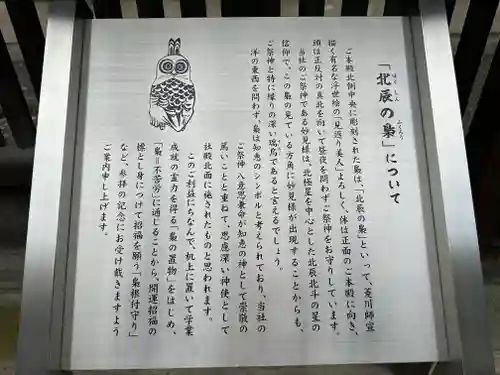 「北辰の梟」について
ほくしん
ふくろう
ご本殿北側中央に彫刻された梟は、「北辰の梟」といって、菱川師宣
描く有名な浮世絵の「見返り美人」よろしく、体は正面のご本殿に向き、
頭は正反対の真北を向いて昼夜を問わずご祭神をお守りしています。
当社のご祭神である妙見様は、北極星を中心とした北辰北斗の星の
信仰で、この梟の見ている方角に妙見様が出現することからも、
ご祭神と特に縁りの深い瑞鳥であると言えるでしょう。
洋の東西を問わず、梟は知恵のシンボルと考えられており、当社の
ご祭神 八意思兼命が知恵の神として崇敬の
篤いことと重ねて、思慮深い神使として
社殿北面に施されたものと思われます。
このご利益にちなんで、机上に置いて学業
成就の霊力を得る「梟の置物」をはじめ、
「梟＝不苦労」に通じることから、開運招福の
標として身につけて招福を願う「梟根付守り」
など、参拝の記念にお受け戴きますよう
ご案内申し上げます。